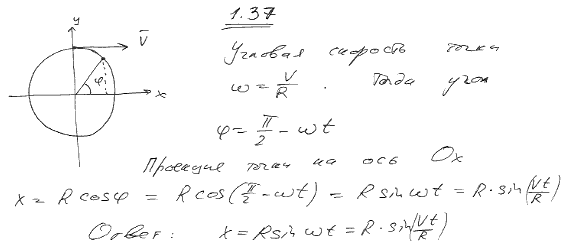 1.37
y
V
φ
x
Угловая скорость точки
ω = V/R . Тогда угол
φ = π/2 − ωt
Проекция точки на ось Ox
x = R cosφ = R cos(π/2 − ωt) = R sin ωt = R · sin(Vt/R)
Ответ: x = R sin ωt = R · sin(Vt/R)